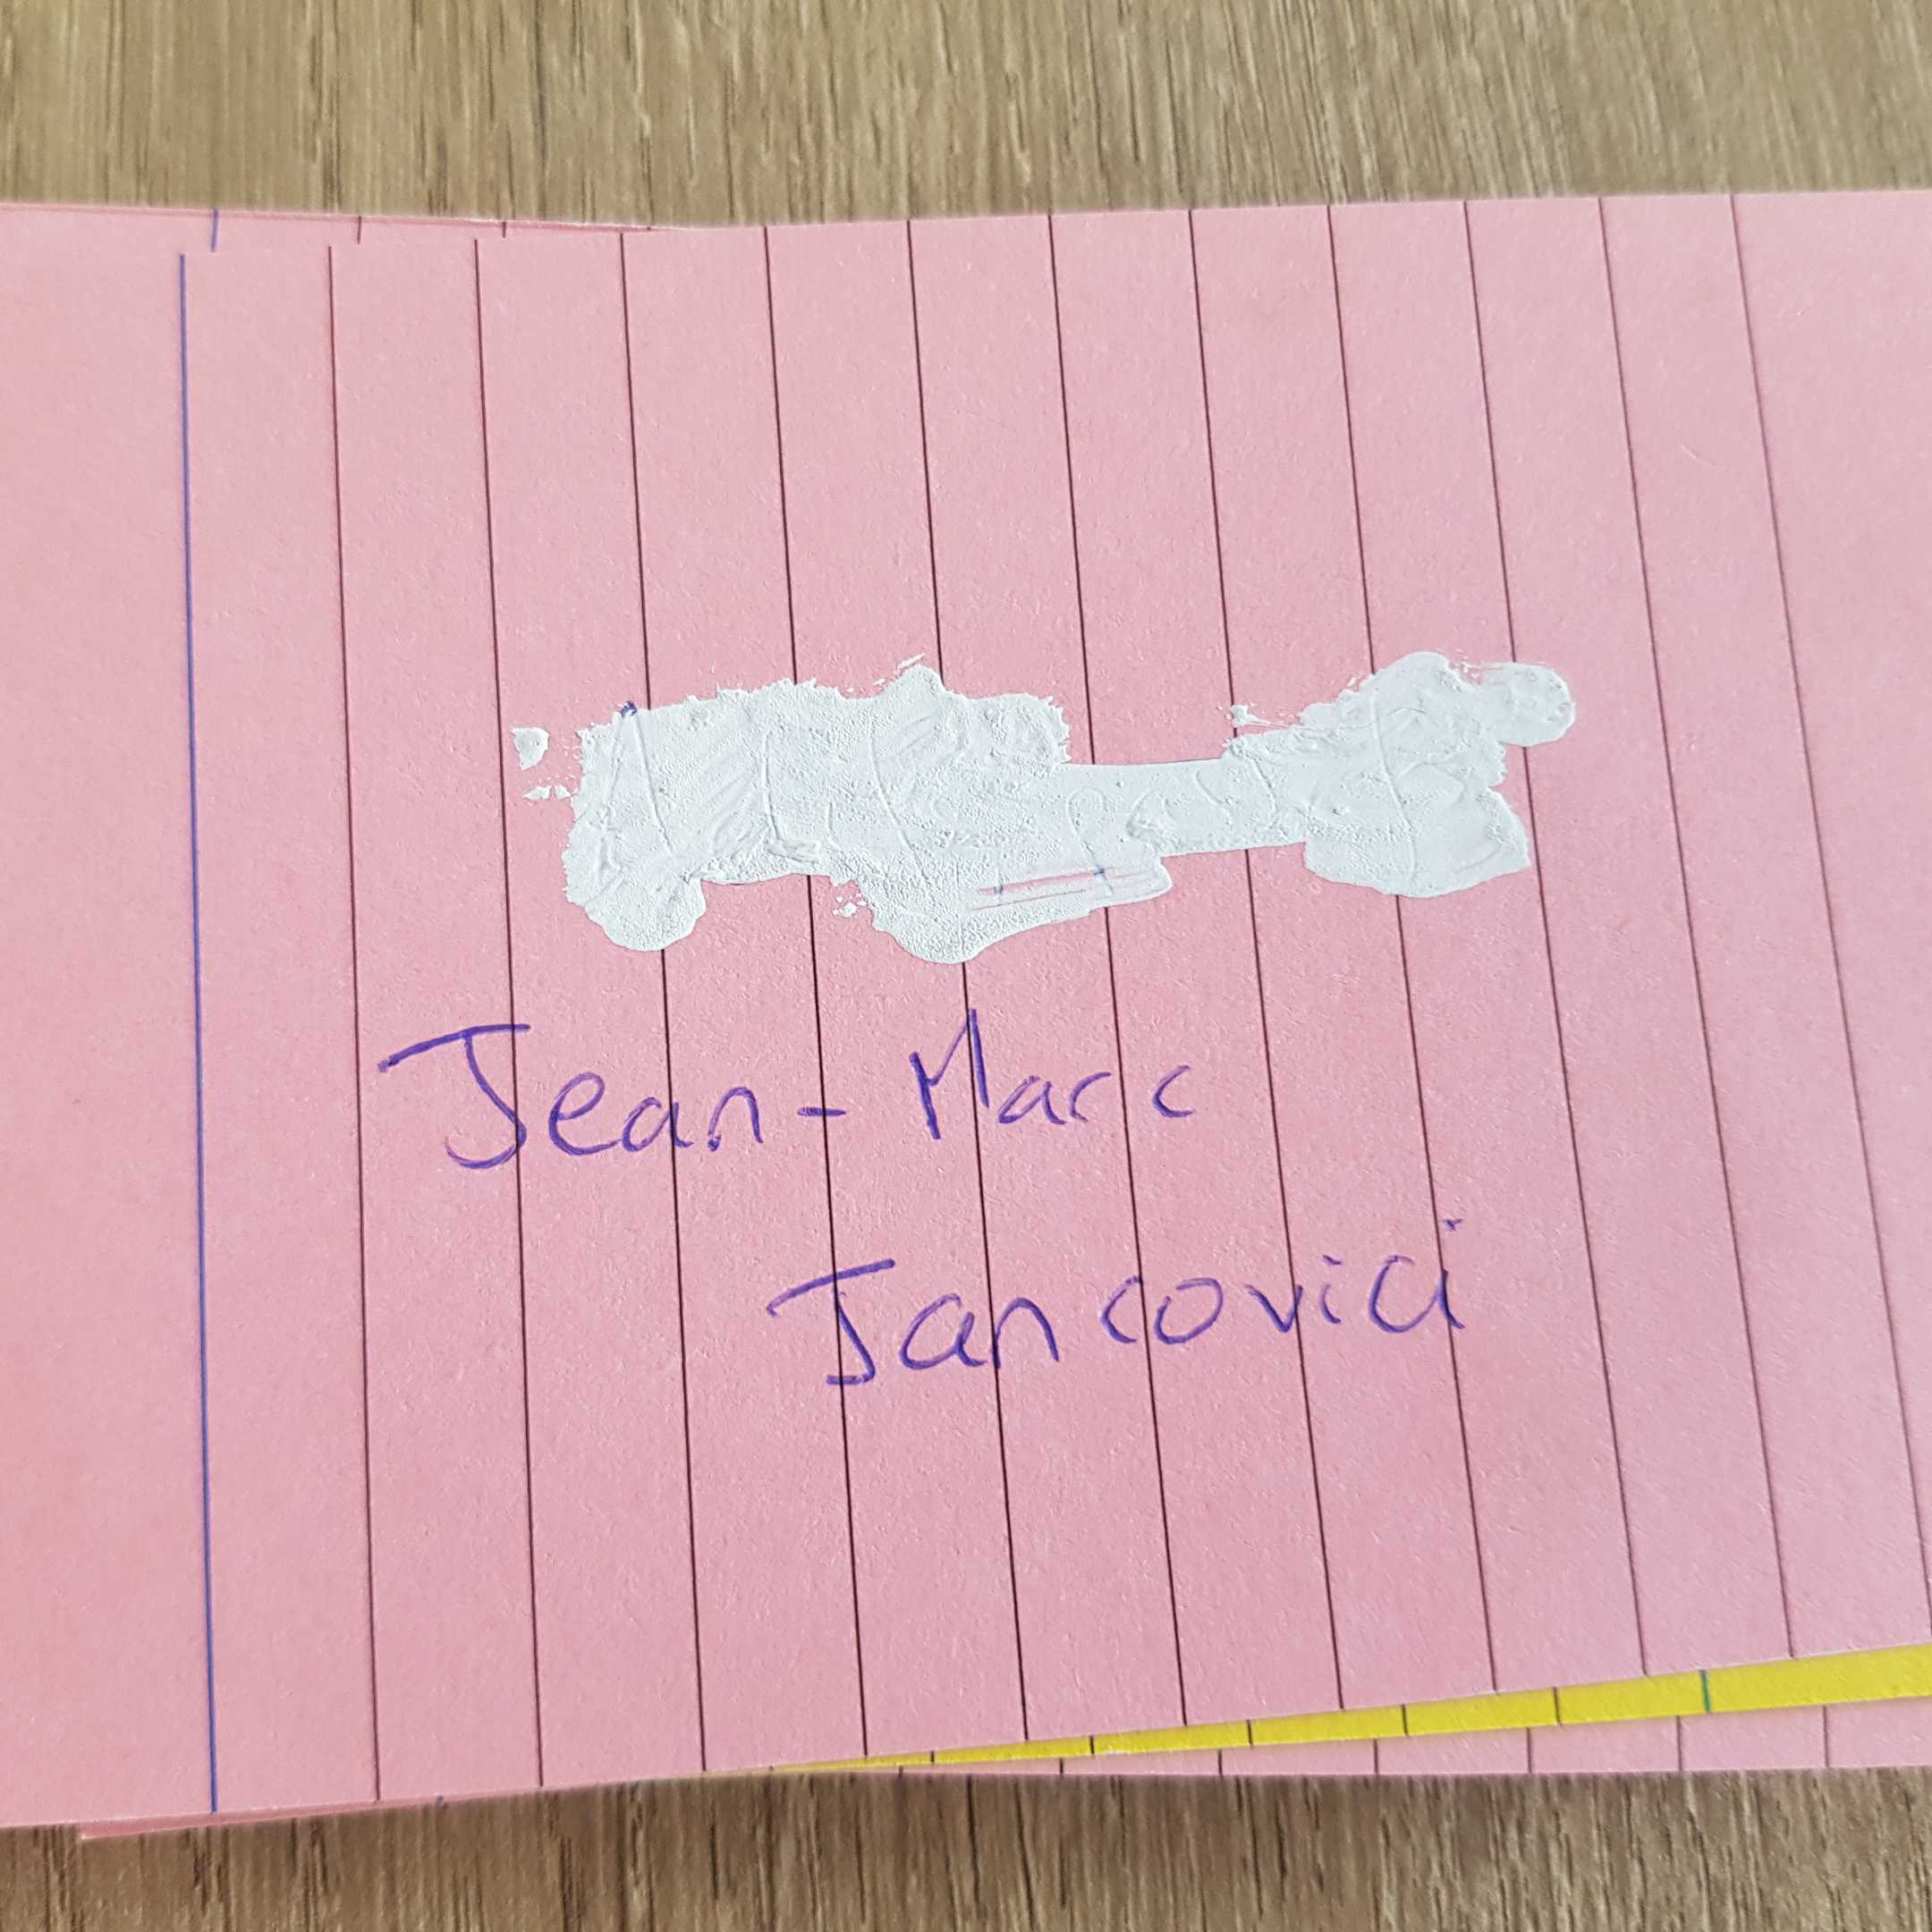 Jean-Marc
Jancovici